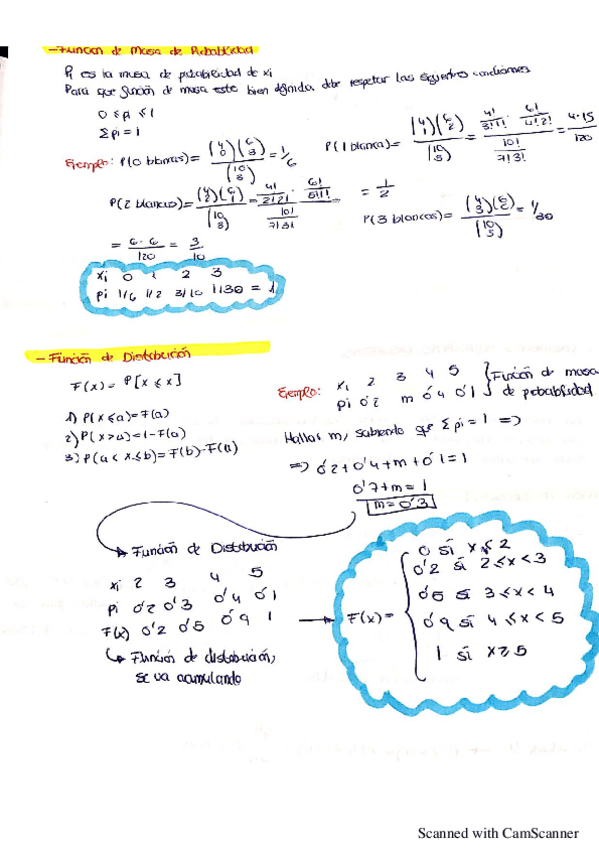 - Función de Masa de Probabilidad
Pi es la masa de probabilidad de xi
Para que función de masa este bien definida, debe respetar las siguientes condiciones
0 ≤ pi ≤ 1
Σpi = 1
Ejemplo: P(0 blancas) = (4 0)(6 3) / (10 3) = 1/6
P(1 blanca) = (4 1)(6 2) / (10 3) = 4!/3!1! · 6!/4!2! / 10!/7!3! = 4·15/120
= 1/2
P(2 blancas) = (4 2)(6 1) / (10 3) = 4!/2!2! · 6!/5!1! / 10!/7!3!
P(3 blancas) = (4 3)(6 0) / (10 3) = 1/30
= 6·6/120 = 3/10
xi 0 1 2 3
pi 1/6 1/2 3/10 1/30 = 1
- Función de Distribución
F(x) = P[X ≤ x]
1) P(x ≤ a) = F(a)
2) P(x > a) = 1 - F(a)
3) P(a < x ≤ b) = F(b) - F(a)
Ejemplo: xi 2 3 4 5 } Función de masa
pi 0'2 m 0'4 0'1 de probabilidad
Hallar m, sabiendo que Σpi = 1 =>
=> 0'2 + 0'4 + m + 0'1 = 1
0'7 + m = 1
m = 0'3
Función de Distribución
xi 2 3 4 5
pi 0'2 0'3 0'4 0'1
F(x) 0'2 0'5 0'9 1
Función de distribución,
se va acumulando
F(x) =
0 si x < 2
0'2 si 2 ≤ x < 3
0'5 si 3 ≤ x < 4
0'9 si 4 ≤ x < 5
1 si x ≥ 5
Scanned with CamScanner